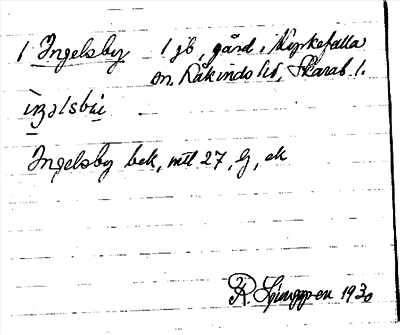 1 Ingelsby 1 jb, gård i Myrkefalla
sn. Kåkinds hd, Skarab. l.
ìŋəlsbùi
Ingelsby bek, mtl 27, G, ek
R. Ljunggren 1930